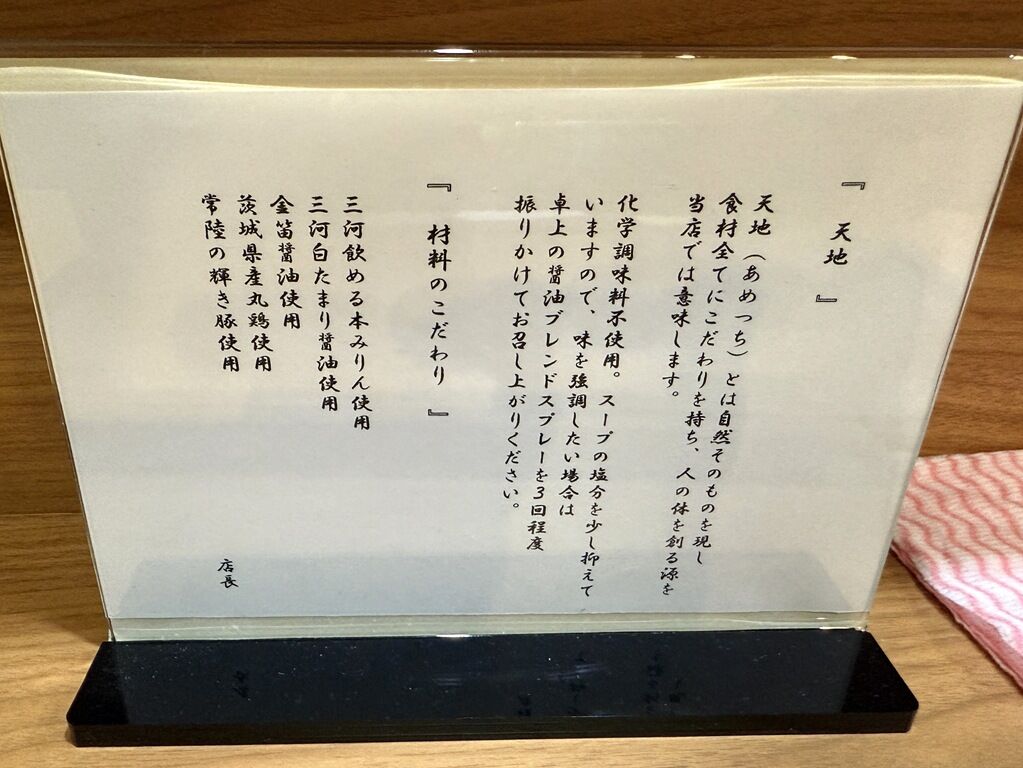 『 天地 』
天地（あめっち）とは自然そのものを現し
食材全てにこだわりを持ち、人の体を創る源を
当店では意味します。
化学調味料不使用。スープの塩分を少し抑えて
いますので、味を強調したい場合は
卓上の醤油ブレンドスプレーを3回程度
振りかけてお召し上がりください。
『 材料のこだわり 』
三河飲める本みりん使用
三河白たまり醤油使用
金笛醤油使用
茨城県産丸鶏使用
常陸の輝き豚使用
店長